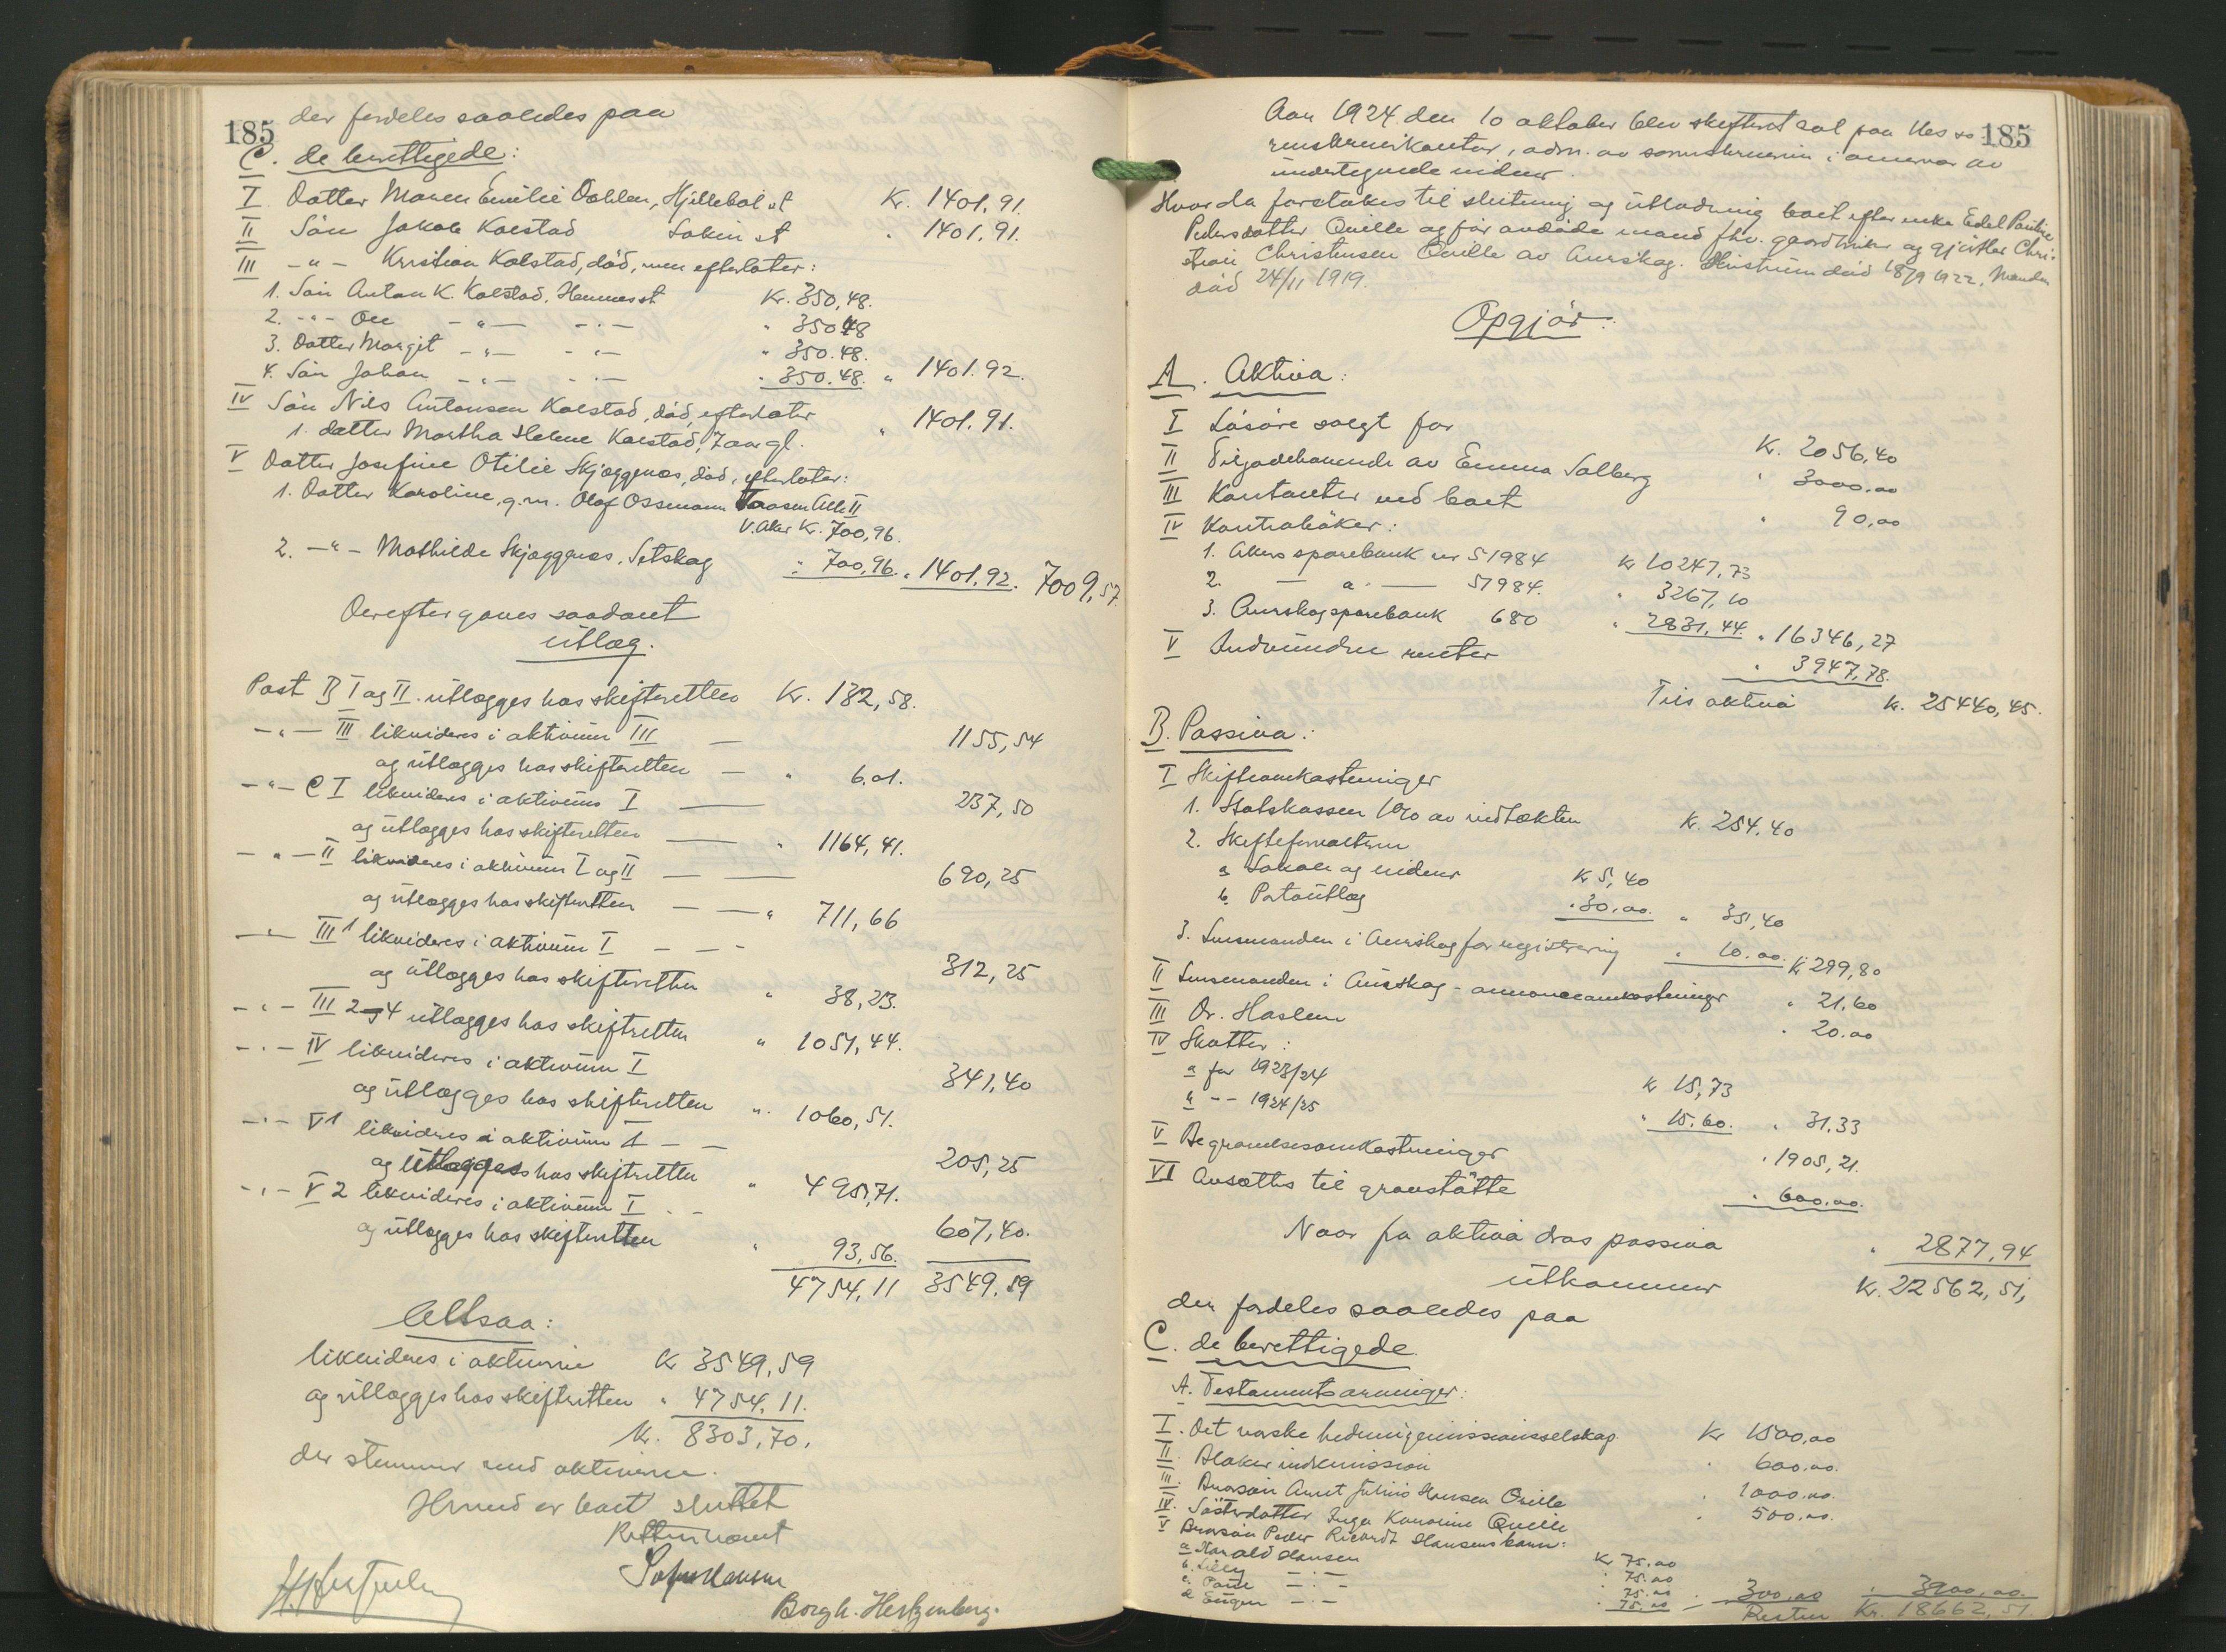 185
der fordeles saaledes paa
C. de berettigede:
I. Datter Maren Emilie Dahlen, Hjellebøl st Kr. 1401,91.
II Søn Jakob Kolstad Løken st " 1401,91.
III -"- Kristian Kolstad, død, men efterlater:
1. Søn Anton K. Kolstad. Hemnes st Kr. 350,48.
2. -"- Ole -"- -"- " 350,48
3. Datter Margit -"- -"- " 350.48.
4. Søn Johan -"- -"- " 350.48. " 1401.92.
IV Søn Nils Antonsen Kolstad, død, efterlater
1. datter Martha Helene Kolstad, 7 aar gl. " 1401.91.
V Datter Josefine Otilie Skjøggenæs, død, efterlater:
1. Datter Karoline, g.m. Olaf Ossmann Traasen Alle II
V. Aker Kr. 700,96.
2. -"- Mathilde Skjøggenæs, Setskog " 700,96. " 1401.92. 7009,57
Derefter gaves saadant
utlæg.
Post B I og II utlægges hos skifteretten Kr. 132,58.
-"- III likvideres i aktivum III — 1155,54
og utlægges hos skifteretten — " 6.01.
-"- C I likvideres i aktivum I — 237,50
og utlægges hos skifteretten — " 1164,41.
-"- II likvideres i aktivum I og II — 690,25
og utlægges hos skifteretten — " 711,66
-"- III 1 likvideres i aktivum I — 312,25
og utlægges hos skifteretten " 38,23.
-"- III 2-4 utlægges hos skifteretten " 1051,44.
-"- IV likvideres i aktivum I 341,40
og utlægges hos skifteretten " 1060,51.
-"- V 1 likvideres i aktivum I — 205,25
og utlægges hos skifteretten " 495,71.
-"- V 2 likvideres i aktivum I - - 607,40.
og utlægges hos skifteretten " 93,56.
4754,11 3549.59
Altsaa:
likvideres i aktiverne Kr 3549,59
og utlægges hos skifteretten " 4754,11.
Kr. 8303,70.
der stemmer med aktiverne.
Hermed er boet sluttet
Retten hævet
Borgh. Hertzenberg.
185
Aar 1924 den 10 oktober blev skifteret sat paa Nes so-
renskriverkontor, adm. av sorenskriveren i nærvær av
undertegnede vidner.
Hvorda foretokes til slutning og utlodning boet efter enke Edel Pauline
Pedersdatter Quille og før avdøde mand fhv. gaardbruker og gjørtler Chri-
stian Christensen Quille av Aurskog. Hustruen død 18/9 1922. Manden
død 24/11 1919.
Opgjør:
A. Aktiva:
I Løsøre solgt for Kr. 2056,40
II Tilgodehavende av Emma Solberg " 3000.00
III Kontanter ved boet " 90,00
IV Kontrabøker:
1. Akers sparebank nr 51984 Kr 10247,73
2. — " — 51984. " 3267,10
3. Aurskog sparebank 680 " 2831,44. " 16346,27
V Indvundne renter " 3947,78.
Tils aktiva Kr. 25440,45.
B. Passiva:
I Skifteomkostninger
1. Statskassen 1% av indtækten Kr. 254,40
2. Skifteforvalteren
a Lokale og vidner Kr 5,40
b. Portoutlæg " 30.00. " 35,40
3. Lensmanden i Aurskog for registrering " 10.00. Kr 299,80
II Lensmanden i Aurskog - annonceomkostninger " 21,60
III Dr. Haslem " 20.00
IV Skatter:
a for 1923/24 Kr 15,73
b -- 1924/25 " 15.60. " 31,33
V Begravelsesomkostninger " 1905,21.
VI Avsættes til gravstøtte " 600.00.
Naar fra aktiva dras passiva " 2877,94
utkommer Kr. 22562,51,
der fordeles saaledes paa
C. de berettigede
A. Testamentsarvinger:
I. Det norske hedningemissionsselskap Kr 1500,00
II. Blaker indremission " 600.00.
III. Brorsøn Anret Julius Hansen Quille " 1000.00.
IV. Søsterdatter Inga Karoline Quille " 500.00.
V Brorsøn Peder Ricardt Hansens barn:
a Harald Hansen Kr 75.00
b. Lilly -"- " 75.00
c. Paul -"- " 75.00
d Eugen -"- " 75.00 " 300.00 " 3900,00.
Resten Kr. 18662,51.